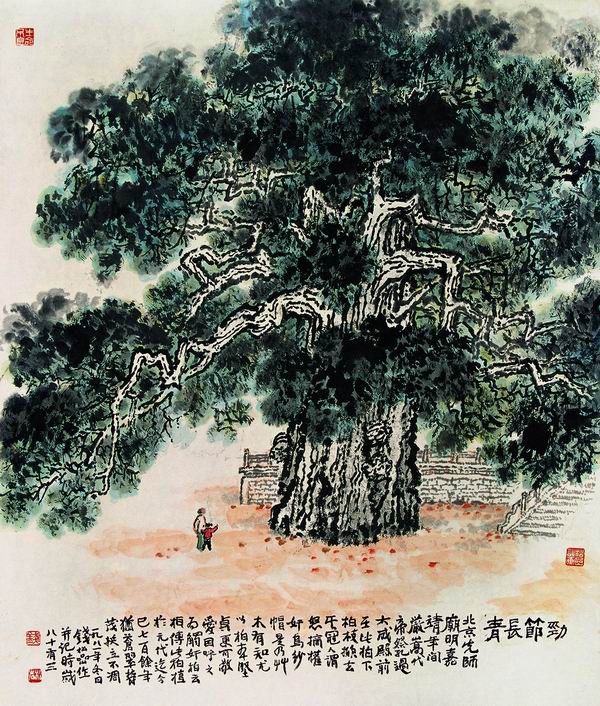 勁節長青
北京先師
廟明嘉
靖年间
嚴嵩代
帝祭孔過
大成殿前
至此柏下
柏枝掀去
其冠人謂
怒摘權
奸烏紗
帽是乃艸
木有知尤
以柏堅
貞更可敬
愛因呼之
為觸奸柏云
相傳此柏植
於元代迄今
已七百餘年
猶蒼翠
茂挺立不凋
一九八一年冬日
錢松喦作
并記時歲
八十有三